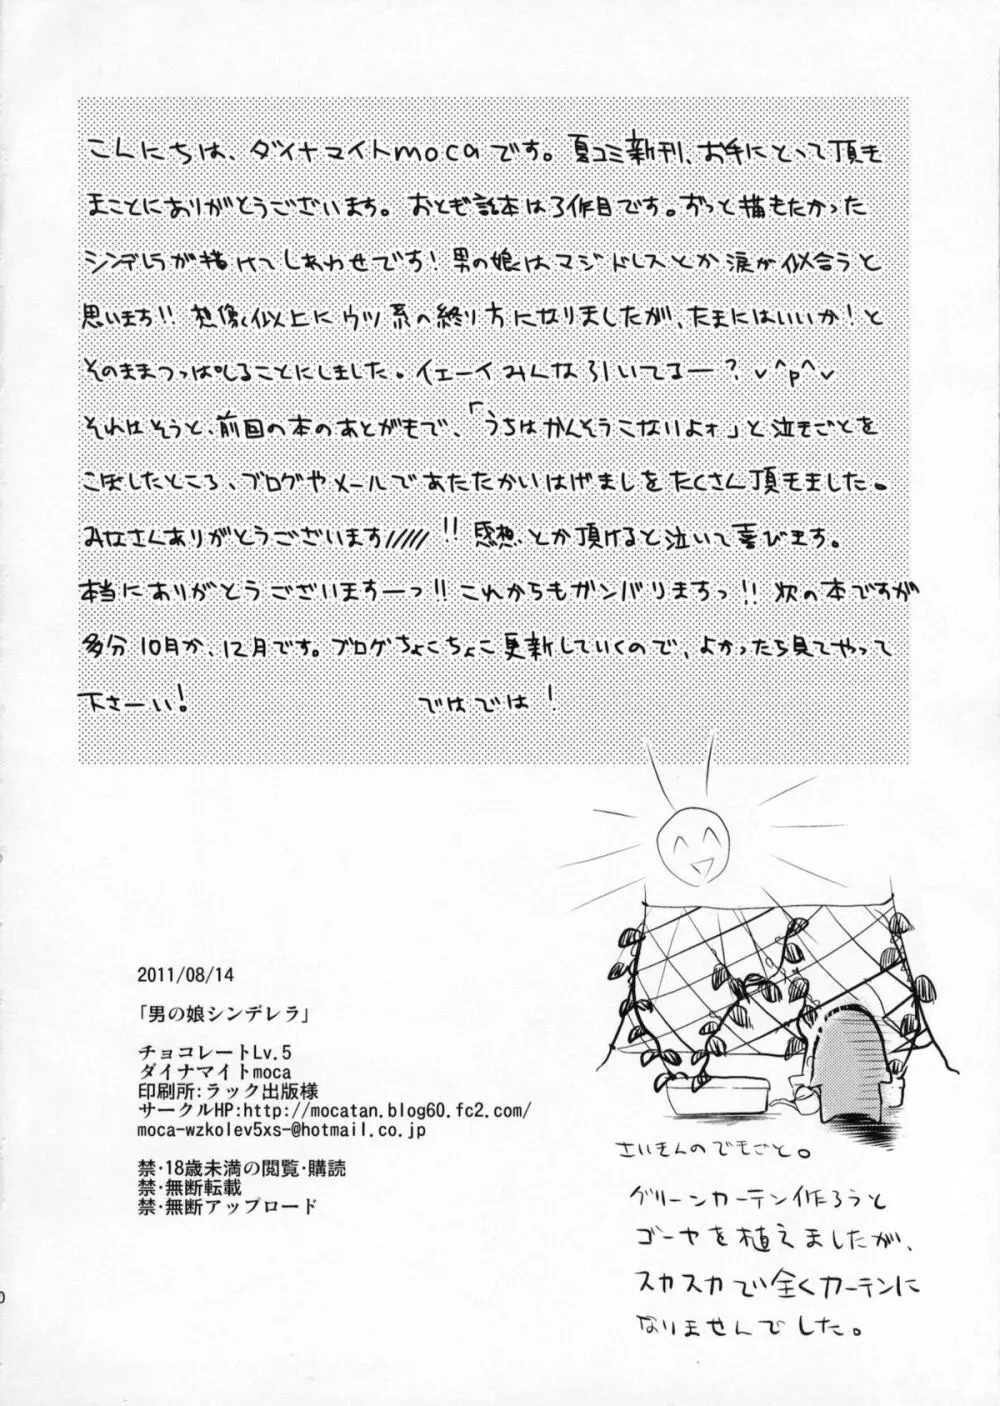 こんにちは、ダイナマイトmocaです。夏コミ新刊、お手にとって頂き
まことにありがとうございます。おとぎ話本は3作目です。ずっと描きたかった
シンデレラが描けてしあわせです！男の娘はマジドレスとか涙が似合うと
思います!! 想像以上にウツ系の終り方になりましたが、たまにはいいか！と
そのままつっぱしることにしました。イェーイみんな引いてるー？v^p^v
それはそうと、前回の本のあとがきで、「うちはかんそうこないよォ」と泣きごとを
こぼしたところ、ブログやメールであたたかいはげましをたくさん頂きました。
みなさんありがとうございます/////!! 感想とか頂けると泣いて喜びます。
本当にありがとうございますーっ!! これからもガンバリますっ!! 次の本ですが
多分10月か、12月です。ブログちょこちょこ更新していくので、よかったら見てやって
下さーい！ ではでは！
2011/08/14
「男の娘シンデレラ」
チョコレートLv.5
ダイナマイトmoca
印刷所:ラック出版様
サークルHP:http://mocatan.blog60.fc2.com/
moca-wzkolev5xs-@hotmail.co.jp
禁・18歳未満の閲覧・購読
禁・無断転載
禁・無断アップロード
さいきんのできごと。
グリーンカーテン作ろうと
ゴーヤを植えましたが、
スカスカで全くカーテンに
なりませんでした。